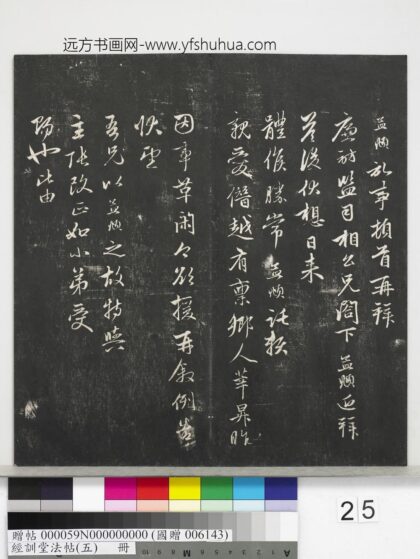 远方书画网-www.yfshuhua.com
孟頫記事頓首再拜
廉訪監司相公兄閣下孟頫近拜
荅後伏想日來
體候勝常孟頫託
親愛僭越有稟鄉人華昇昨
因事革閑今欲援再叙例告
狀望
吾兄以孟頫之故特與
主張改正如小弟受
賜也此由
25
贈帖 000059N000000000 (國贈 006143)
經訓堂法帖(五) 冊